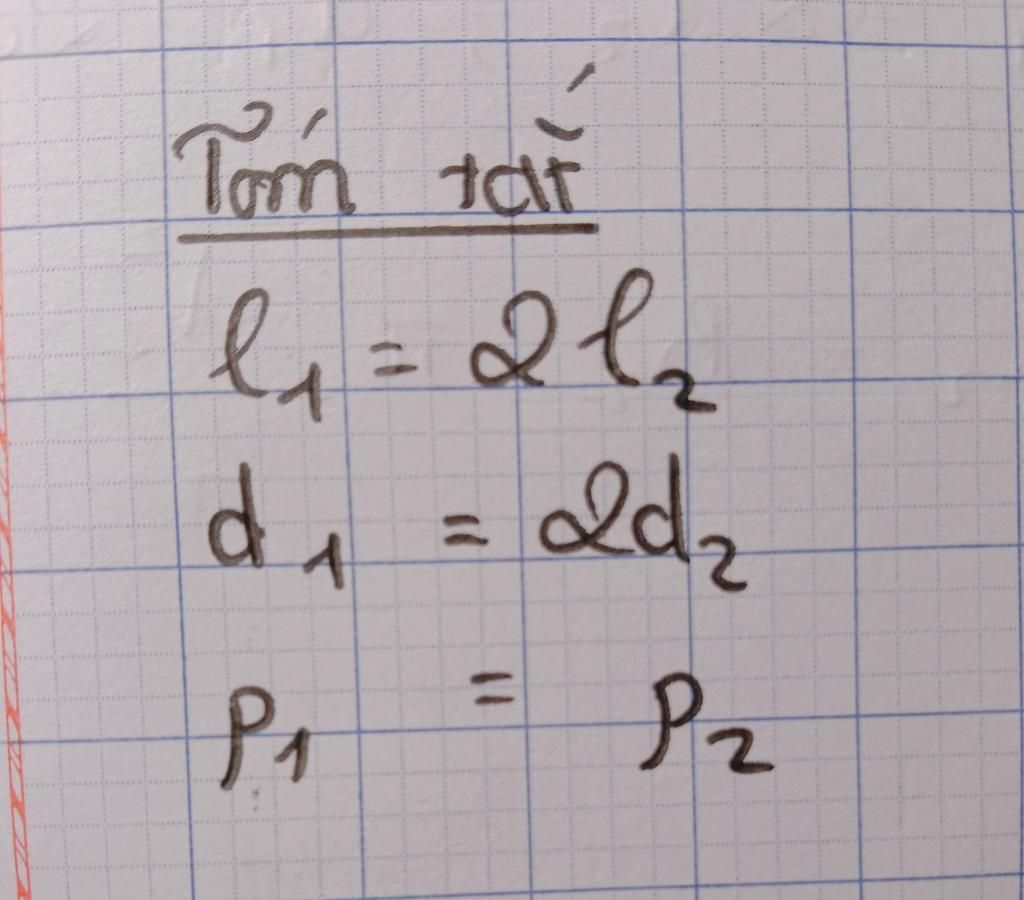 Tóm tắt
l₁ = 2 l₂
d₁ = 2d₂
ρ₁ = ρ₂